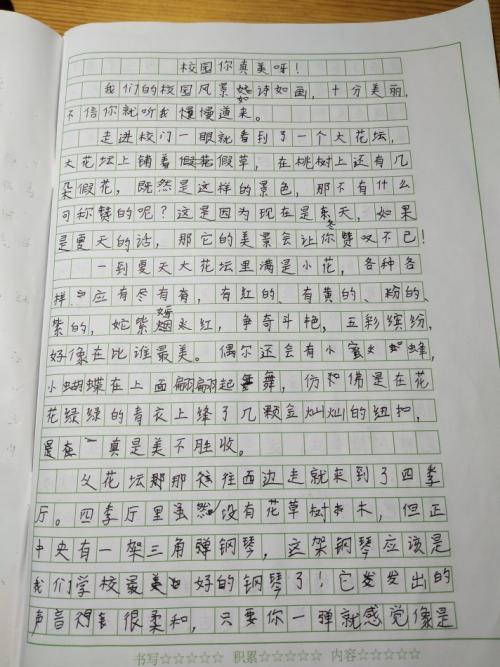 校园你真美呀!
我们的校园风景如诗如画,十分美丽,
不信你就听我慢慢道来。
走进校门一眼就看到了一个大花坛,
大花坛上铺着假草,在桃树上还有几
朵假花,既然是这样的景色,那不有什么
可称赞的呢?这是因为现在是冬天,如果
是夏天的话,那它的美景会让你赞叹不已!
一到夏天大花坛里满是小花,各种各
样,应有尽有,有红的、有黄的、粉的、
紫的,姹紫嫣红,争奇斗艳,五彩缤纷,
好像在比谁最美。偶尔还会有小蜜蜂,
小蝴蝶在上面翩翩起舞,仿佛是在花
花绿绿的青衣上绛了几颗金灿灿的纽扣,
是在一真是美不胜收。
从花坛那往西边走就来到了四季
厅。四季厅里虽然没有花草树木,但正
中央有一架三角弹钢琴,这架钢琴应该是
我们学校最好的钢琴了!它发出的
声音很柔和,只要你一弹就感觉像是
书写☆☆☆☆☆ 积累☆☆☆☆☆ 内容☆☆☆☆☆